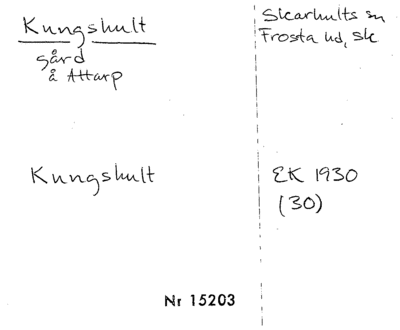 Kungshult
gård
å Attarp
Sicarhults sn
Frosta hd, Sk
Kungshult
EK 1930
(30)
Nr 15203